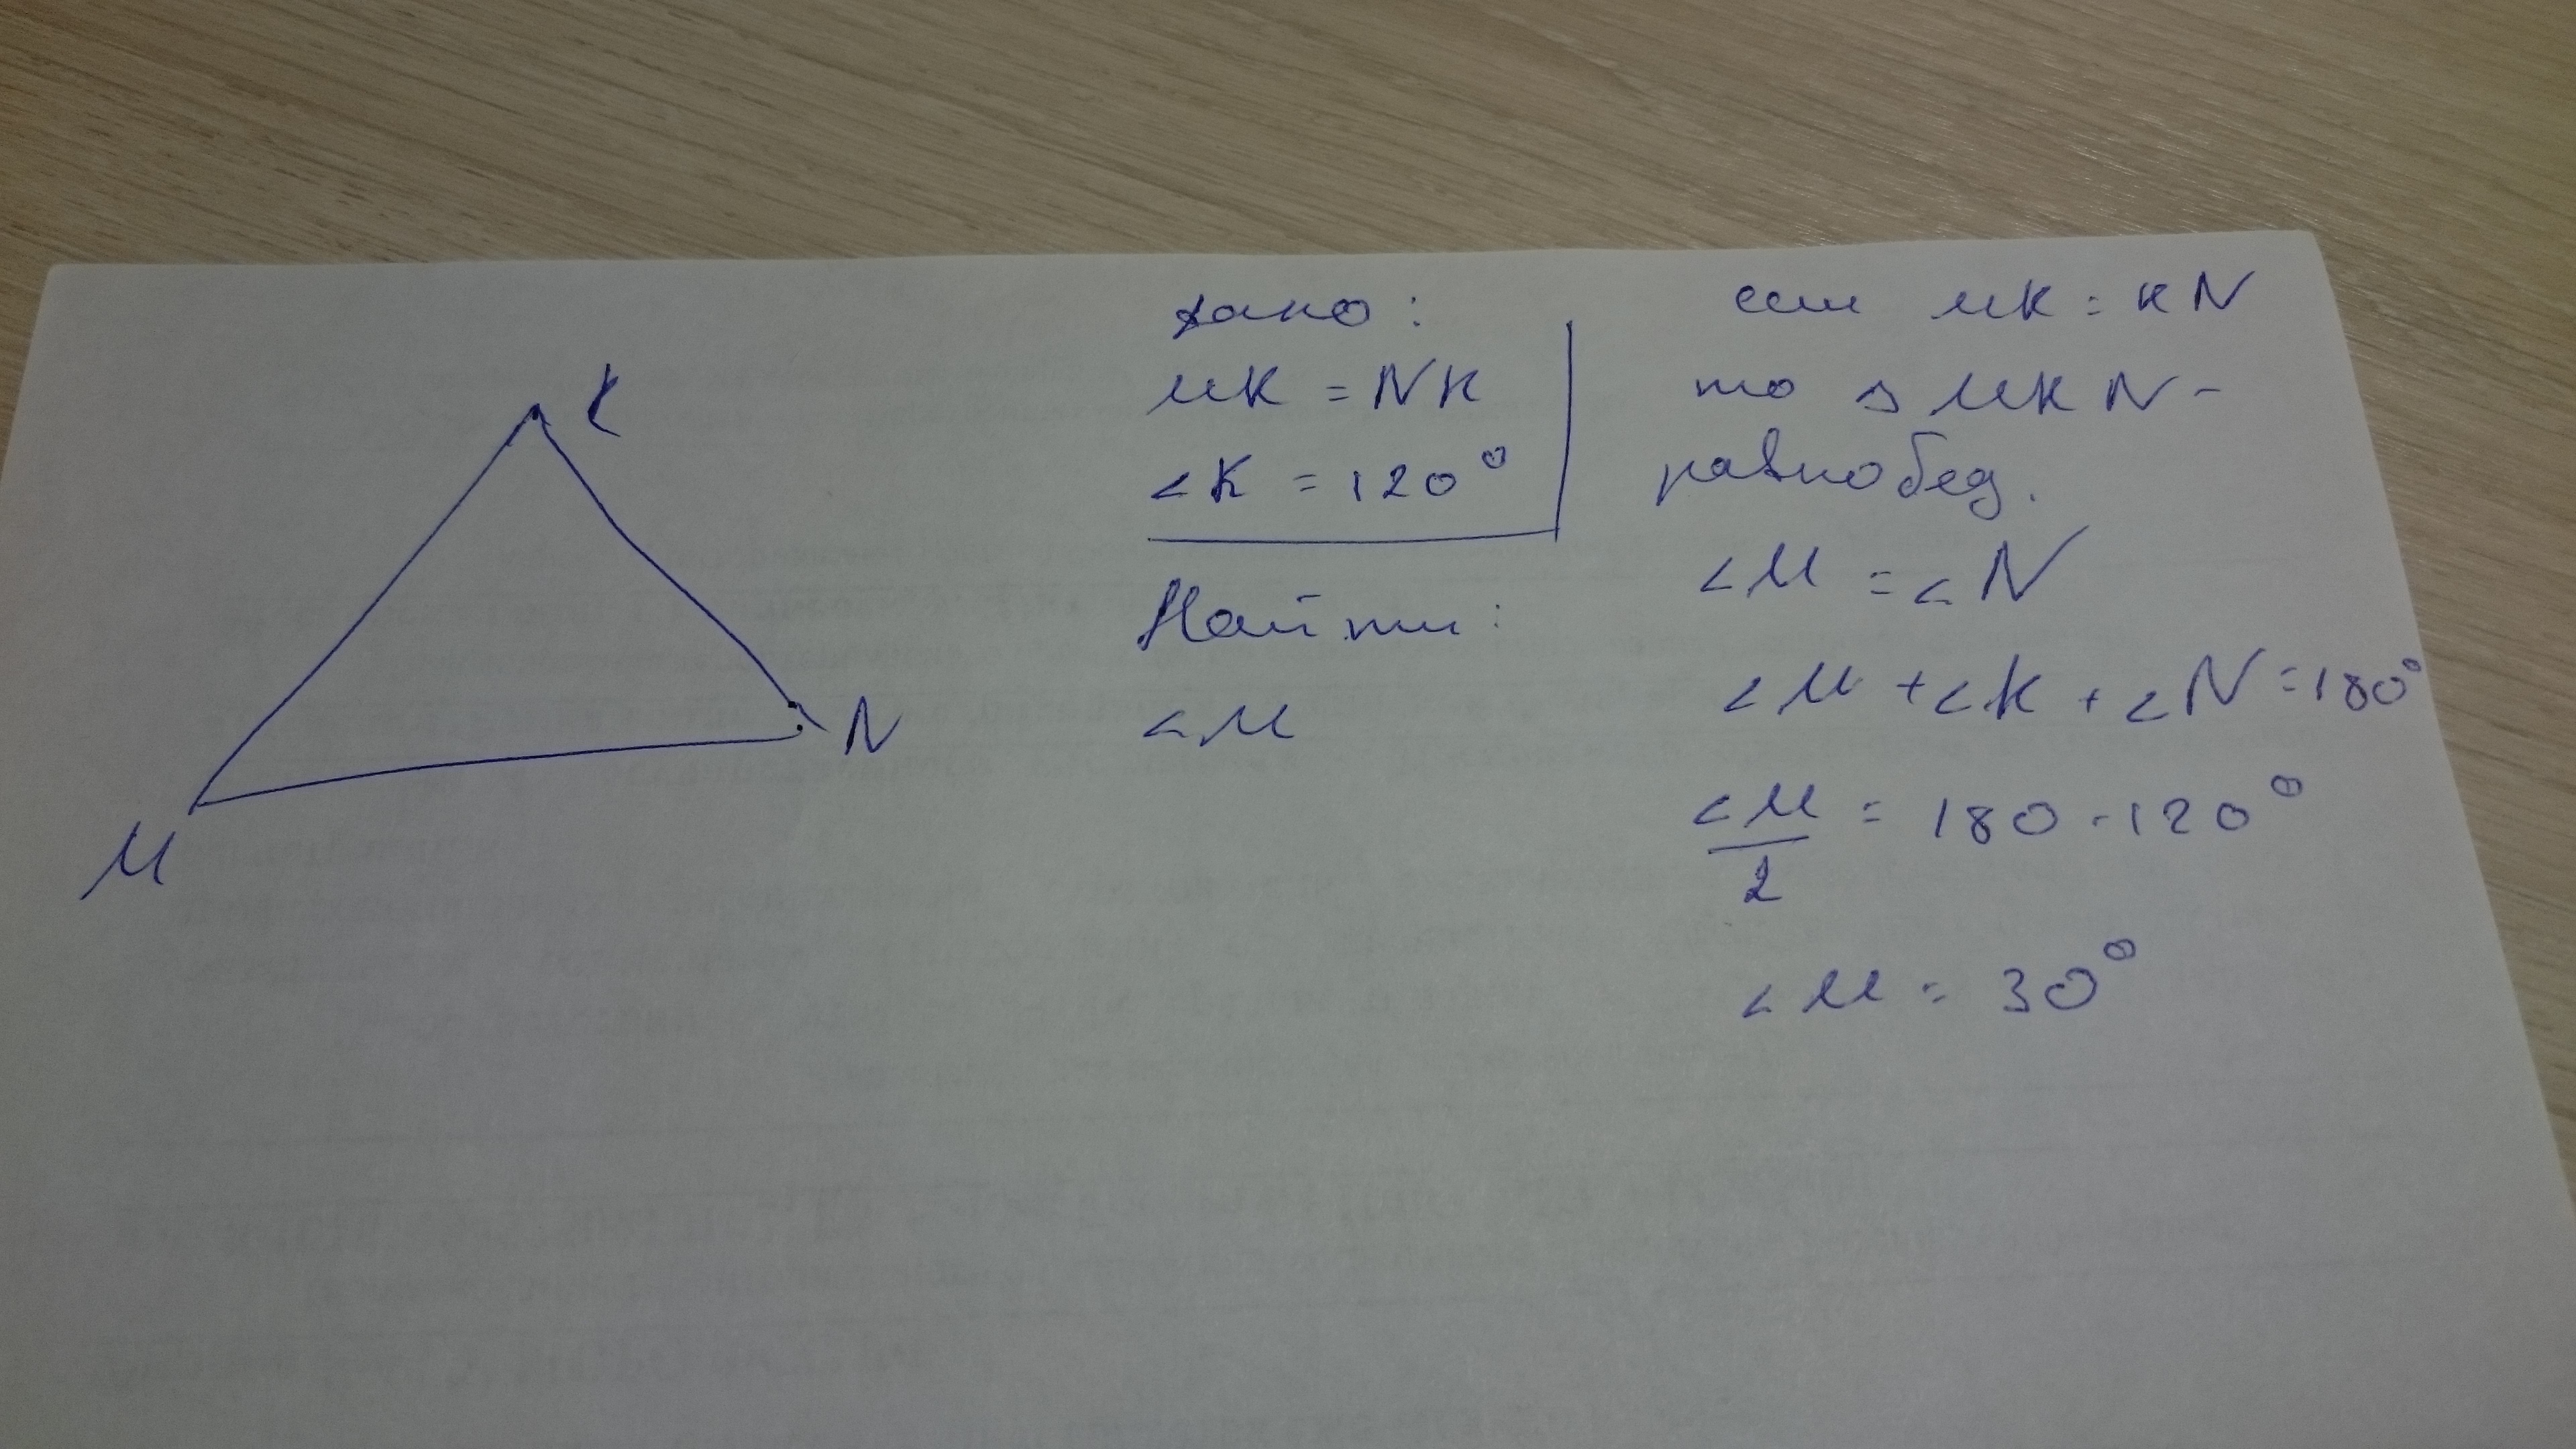 K
M
N
дано:
MK = NK
∠K = 120°
Найти:
∠M
если MK = KN
то △ MKN -
равнобед.
∠M = ∠N
∠M + ∠K + ∠N = 180°
∠M/2 = 180 - 120°
∠M = 30°